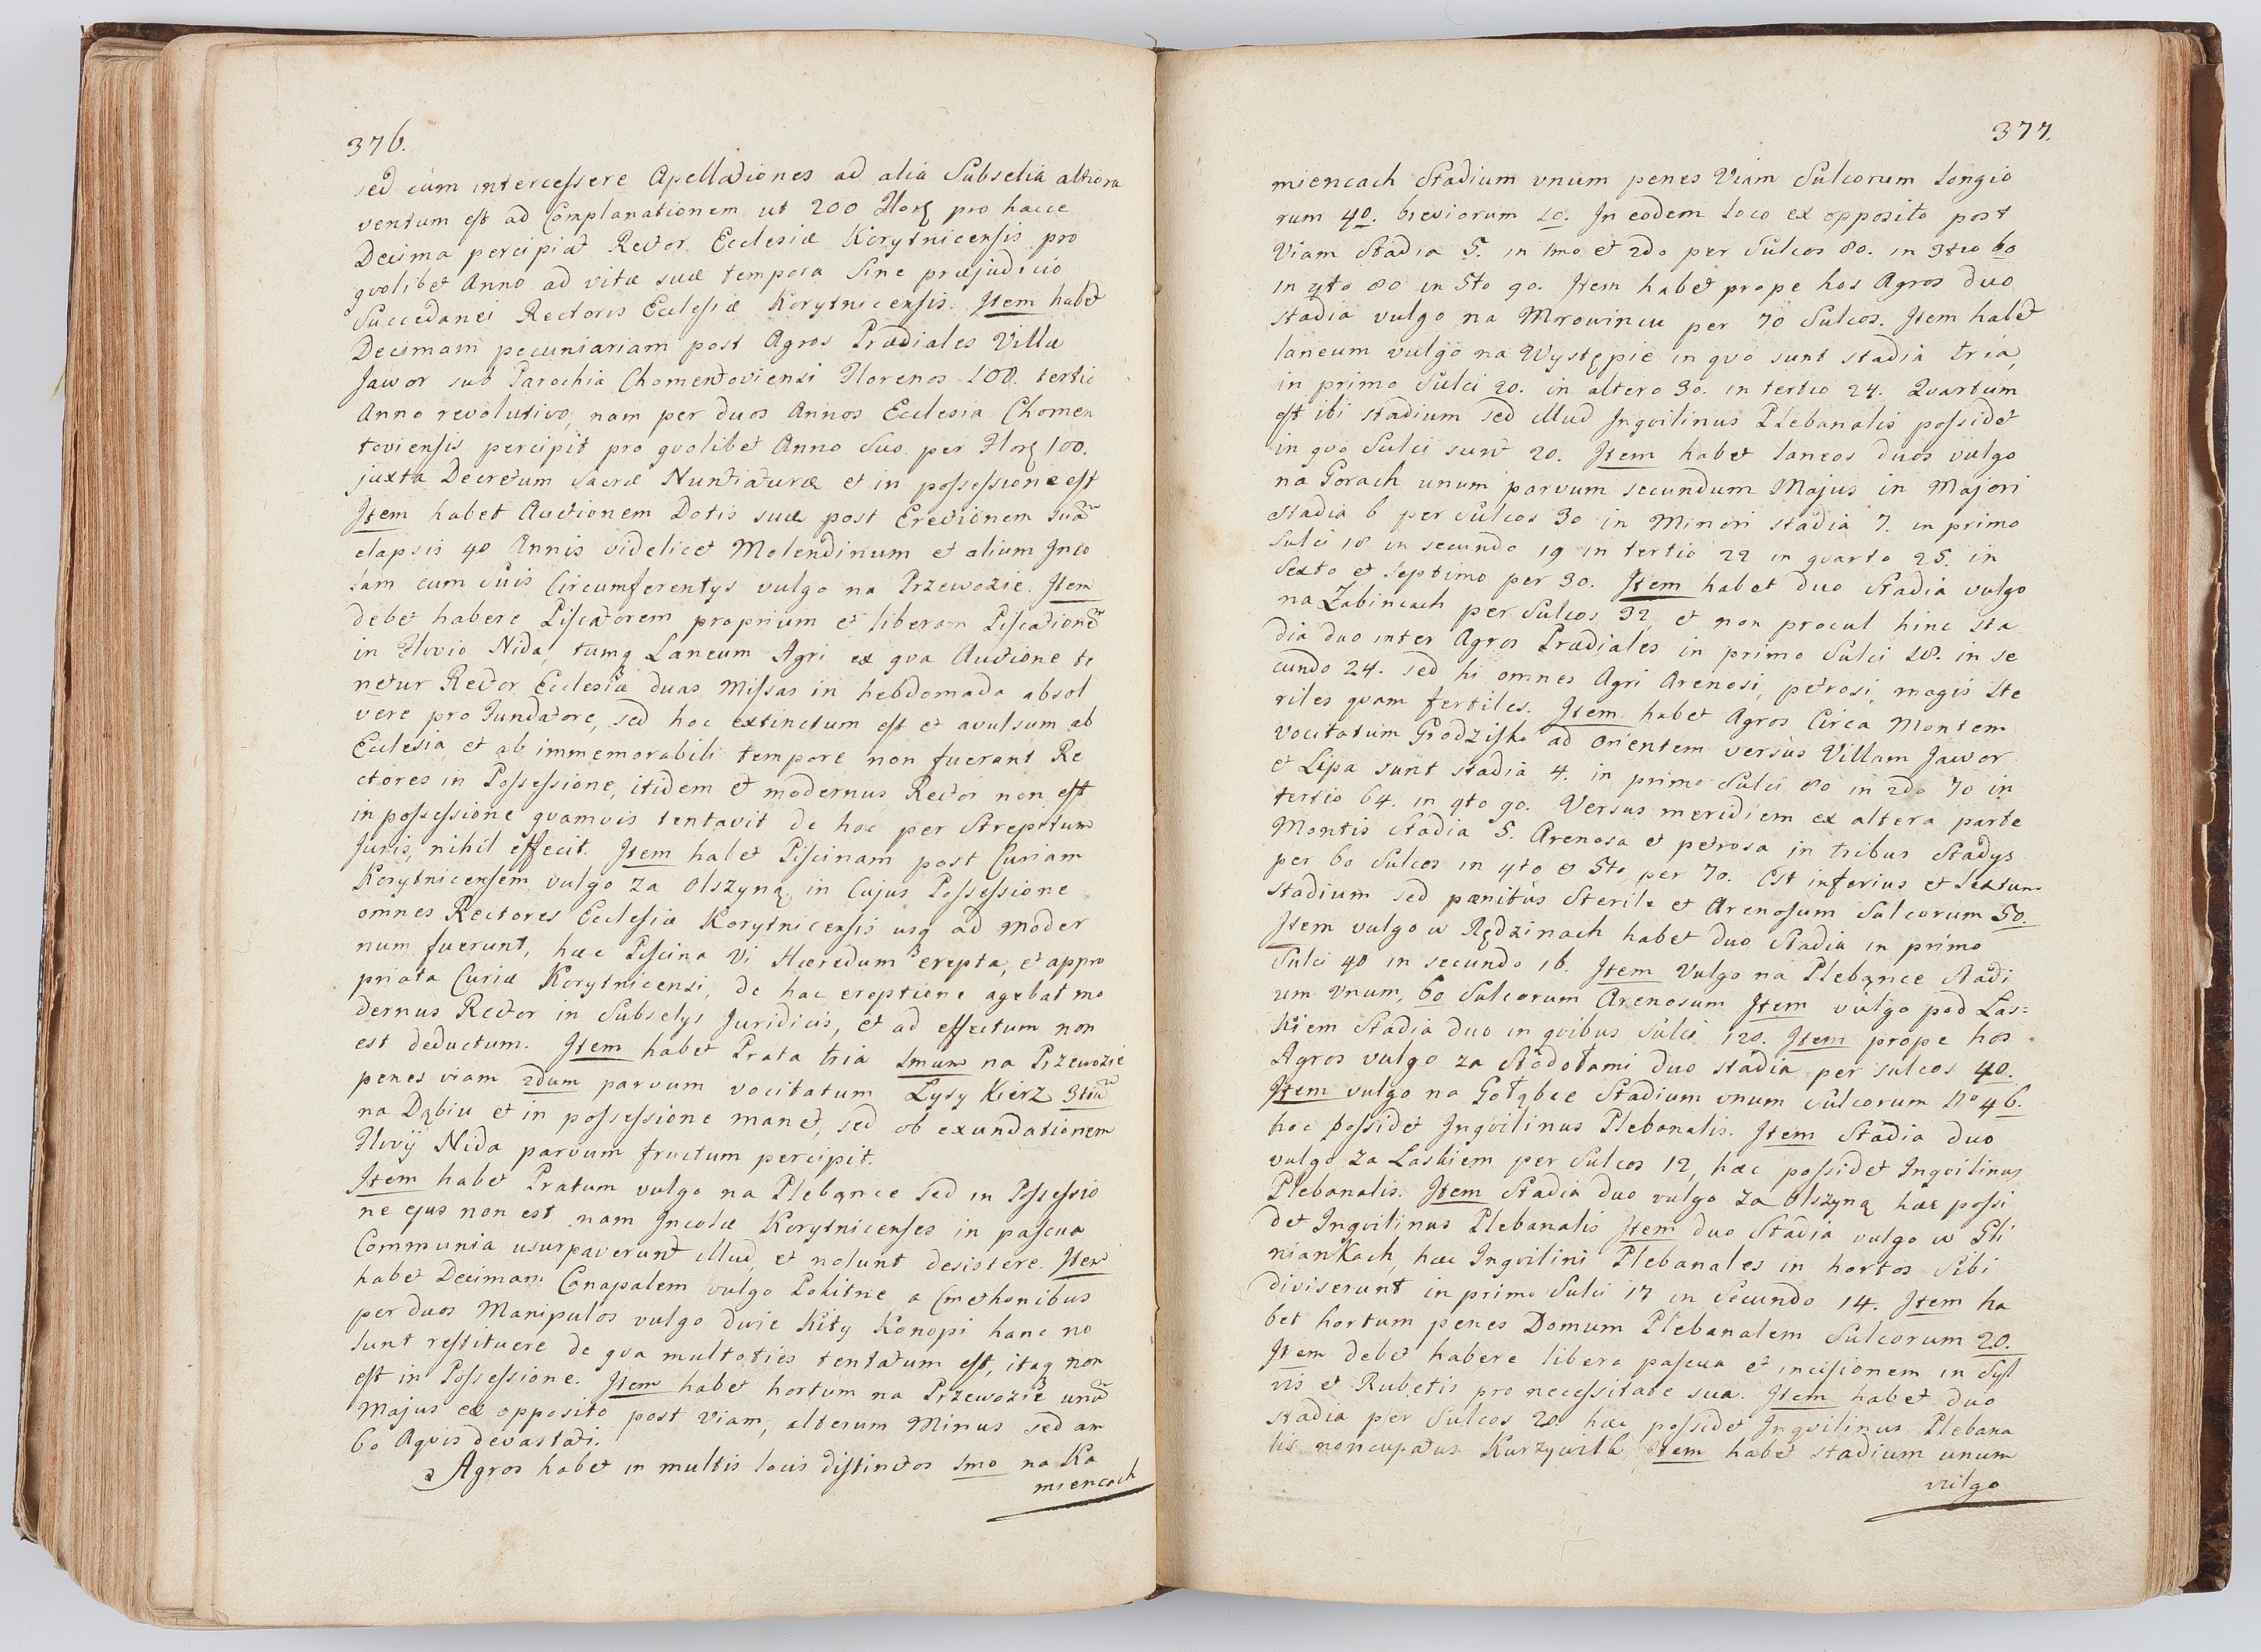 376.
sed cum intercessere Apellationes ad alia Subselia altiora
ventum est ad Complanationem ut 200 Flor pro hacce
Decima percipiat Rector Ecclesiæ Korytnicensis pro
qvolibet Anno ad vitæ suæ tempora Sine præjudicio
Succedanei Rectoris Ecclesiæ Korytnicensis. Item habet
Decimam pecuniariam post Agros Prædiales Villæ
Jawor sub Parochia Chomentoviensi Florenos 100. tertio
Anno revolutivo, nam per duos Annos Ecclesia Chomen
toviensis percipit pro qvolibet Anno Suo per Flor 100.
juxta Decretum Sacræ Nuntiaturæ et in possessione est
Item habet Auctionem Dotis suæ post Erectionem suã
elapsis 40 Annis videlicet Molendinum et alium Inco
lam cum Suis Circumferentys vulgo na Przewozie. Item
debet habere Piscatorem proprium et liberam Piscationẽ
in Fluvio Nida, tumq Laneum Agri ex qva Auctione te
netur Rector Ecclesiæ duas Missas in hebdomada absol
vere pro Fundatore, sed hoc extinctum est et avulsum ab
Ecclesia, et ab immemorabili tempore non fuerant Re
ctores in Possessione, itidem et modernus Rector non est
in possessione qvamvis tentavit de hoc per Strepitum
Juris, nihil effecit. Item habet Piscinam post Curiam
Korytnicensem vulgo za Olszyną in Cujus Possessione
omnes Rectores Ecclesiæ Korytnicensis usq ad moder
num fuerunt, hæc Piscina Vi Hæredum erepta, et appro
priata Curiæ Korytnicensi, de hac ereptione agebat mo
dernus Rector in Subselys Juridicis, et ad effectum non
est deductum. Item habet Prata tria 1mum na Przewozie
penes viam 2dum parvum vocitatum Łysy Kierz 3tiũ
na Dąbiu et in possessione manet, sed ob exundationem
Fluvij Nida parvum fructum percipit.
Item habet Pratum vulgo na Plebąnce Sed in Possessio
ne ejus non est nam Incolæ Korytnicenses in pascua
Communia usurpaverunt illud, et nolunt desistere. Item
habet Decimam Canapalem vulgo Pokitne a Cmethonibus
per duos Manipulos vulgo dwie Kity Konopi hanc no
lunt restituere de qva multoties tentatum est, itaq non
est in Possessione. Item habet hortum na Przewozie unũ
Majus ex opposito post viam, alterum Minus sed am
bo Aqvis devastati.
Agros habet in multis locis distinctos 1mo na Ka
miencach
377.
miencach Stadium vnum penes Viam Sulcorum longio
rum 40. breviorum 20. In eodem loco ex opposito post
Viam Stadia 5. in 1mo et 2do per Sulcos 80. in 3tio 60
in 4to 80 in 5to 90. Item habet prope hos Agros duo
stadia vulgo na Mrowincu per 70 Sulcos. Item habet
laneum vulgo na Występie in qvo sunt stadia tria,
in primo Sulci 20. in altero 30. in tertio 24. Qvartum
est ibi stadium sed illud Inqvilinus Plebanalis possidet
in qvo Sulci sunt 20. Item habet laneos duos vulgo
na Gorach unum parvum secundum Majus in Majori
stadia 6 per sulcos 30 in Minori stadia 7. in primo
Sulci 18 in secundo 19 in tertio 22 in qvarto 25. in
Sexto et Septimo per 30. Item habet duo Stadia vulgo
na Żabincach per Sulcos 32, et non procul hinc sta
dia duo inter Agros Prædiales in primo Sulci 28. in se
cundo 24. sed hi omnes Agri Arenosi, petrosi, magis ste
riles qvam fertiles. Item habet Agros Circa Montem
vocitatum Grodzisko ad Orientem versùs Villam Jawor
et Lipa sunt stadia 4. in primo Sulci 80 in 2do 70 in
tertio 64. in 4to 90. Versus meridiem ex altera parte
Montis Stadia 5. Arenosa et petrosa in tribus Stadys
per 60 Sulcos in 4to et 5to per 70. Est inferius et Sextum
stadium sed pænitùs Sterile et Arenosum Sulcorum 50.
Item vulgo w Rędzinach habet duo Stadia in primo
Sulci 40 in secundo 16. Item Vulgo na Plebąnce Stadi
um Vnum, 60 Sulcorum Arenosum Item vulgo pod Las=
kiem Stadia duo in qvibus Sulci 120. Item prope hos
Agros vulgo za Stodołami duo stadia per sulcos 40.
Item vulgo na Gołąbce Stadium vnum Sulcorum No 46.
hoc possidet Inqvilinus Plebanalis. Item Stadia duo
vulgo za Laskiem per Sulcos 12, hæc possidet Inqvilinus
Plebanalis. Item Stadia duo vulgo za Olszyną hæc possi
det Inqvilinus Plebanalis Item duo Stadia vulgo w Gli
niankach, hæc Inqvilini Plebanales in hortos Sibi
diviserunt in primo Sulci 17 in Secundo 14. Item ha
bet hortum penes Domum Plebanalem Sulcorum 20.
Item debet habere libera pascua et incisionem in Syl
vis et Rubetis pro necessitate sua. Item habet duo
stadia per Sulcos 20 hæc possidet Inqvilinus Plebana
lis noncupatus Item habet stadium unum
vulgo